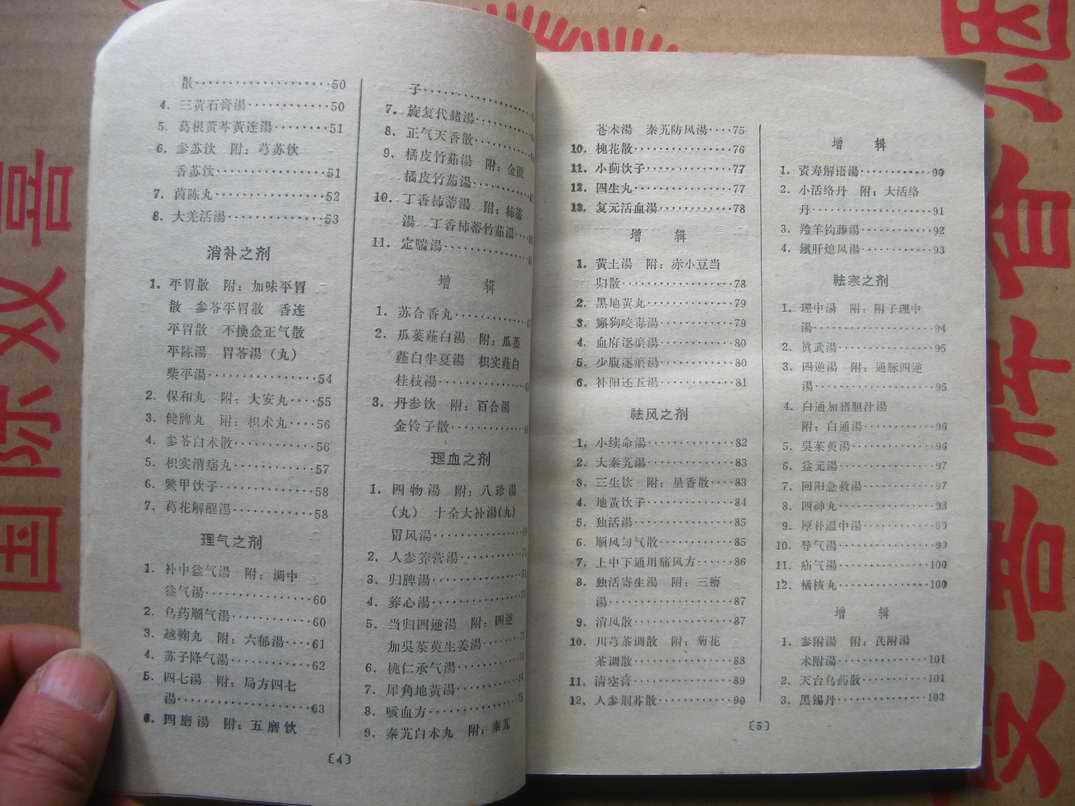 散····················50
4. 三黄石膏湯············50
5. 葛根黄芩黄连湯········51
6. 参苏饮 附：芎苏饮
香苏饮···············51
7. 茵陈丸···············52
8. 大羌活湯·············53
消补之剂
1. 平胃散 附：加味平胃
散 参苓平胃散 香连
平胃散 不换金正气散
平陈湯 胃苓湯（丸）
柴平湯···············54
2. 保和丸 附：大安丸····55
3. 健脾丸 附：枳术丸····56
4. 参苓白术散···········56
5. 枳实消痞丸···········57
6. 鱉甲饮子·············58
7. 葛花解酲湯···········58
理气之剂
1. 补中益气湯 附：調中
益气湯···············60
2. 乌药順气湯···········60
3. 越鞠丸 附：六郁湯····61
4. 苏子降气湯···········62
5. 四七湯 附：局方四七
湯···················63
6. 四磨湯 附：五磨饮
子
7. 旋复代赭湯
8. 正气天香散
9. 橘皮竹茹湯 附：金匱
橘皮竹茹湯
10. 丁香柿蒂湯 附：柿蒂
湯 丁香柿蒂竹茹湯
11. 定喘湯
增 辑
1. 苏合香丸
2. 瓜蒌薤白湯 附：瓜蒌
薤白半夏湯 枳实薤白
桂枝湯
3. 丹参饮 附：百合湯
金铃子散
理血之剂
1. 四物湯 附：八珍湯
（丸） 十全大补湯（丸）
胃风湯
2. 人参养营湯
3. 归脾湯
4. 养心湯
5. 当归四逆湯 附：四逆
加吳茱萸生姜湯
6. 桃仁承气湯
7. 犀角地黃湯
8. 咳血方
9. 秦艽白术丸 附：秦艽
〔4〕
苍术湯 秦艽防风湯····75
10. 槐花散···············76
11. 小薊饮子·············77
12. 四生丸···············77
13. 复元活血湯···········78
增 辑
1. 黃土湯 附：赤小豆当
归散·················78
2. 黑地黄丸·············79
3. 癩狗咬毒湯···········79
4. 血府逐瘀湯···········80
5. 少腹逐瘀湯···········80
6. 补阳还五湯···········81
祛风之剂
1. 小续命湯·············82
2. 大秦艽湯·············83
3. 三生饮 附：星香散····83
4. 地黃饮子·············84
5. 独活湯···············85
6. 順风匀气散···········85
7. 上中下通用痛风方·····86
8. 独活寄生湯 附：三痹
湯···················87
9. 清风散···············87
10. 川芎茶調散 附：菊花
茶調散···············88
11. 清空膏···············89
12. 人参荆苏散···········90
增 辑
1. 資寿解语湯···········90
2. 小活络丹 附：大活络
丹···················91
3. 羚羊钩藤湯···········92
4. 鎮肝熄风湯···········93
祛寒之剂
1. 理中湯 附：附子理中
湯···················94
2. 眞武湯···············95
3. 四逆湯 附：通脉四逆
湯···················95
4. 白通加猪胆汁湯
附：白通湯···········96
5. 吳茱萸湯·············96
6. 益元湯···············97
7. 回阳急救湯···········97
8. 四神丸···············93
9. 厚朴溫中湯···········99
10. 导气湯···············99
11. 疝气湯··············100
12. 橘核丸··············100
增 辑
1. 参附湯 附：芪附湯
术附湯··············101
2. 天台乌药散··········101
3. 黑锡丹··············102
〔5〕
国际双喜